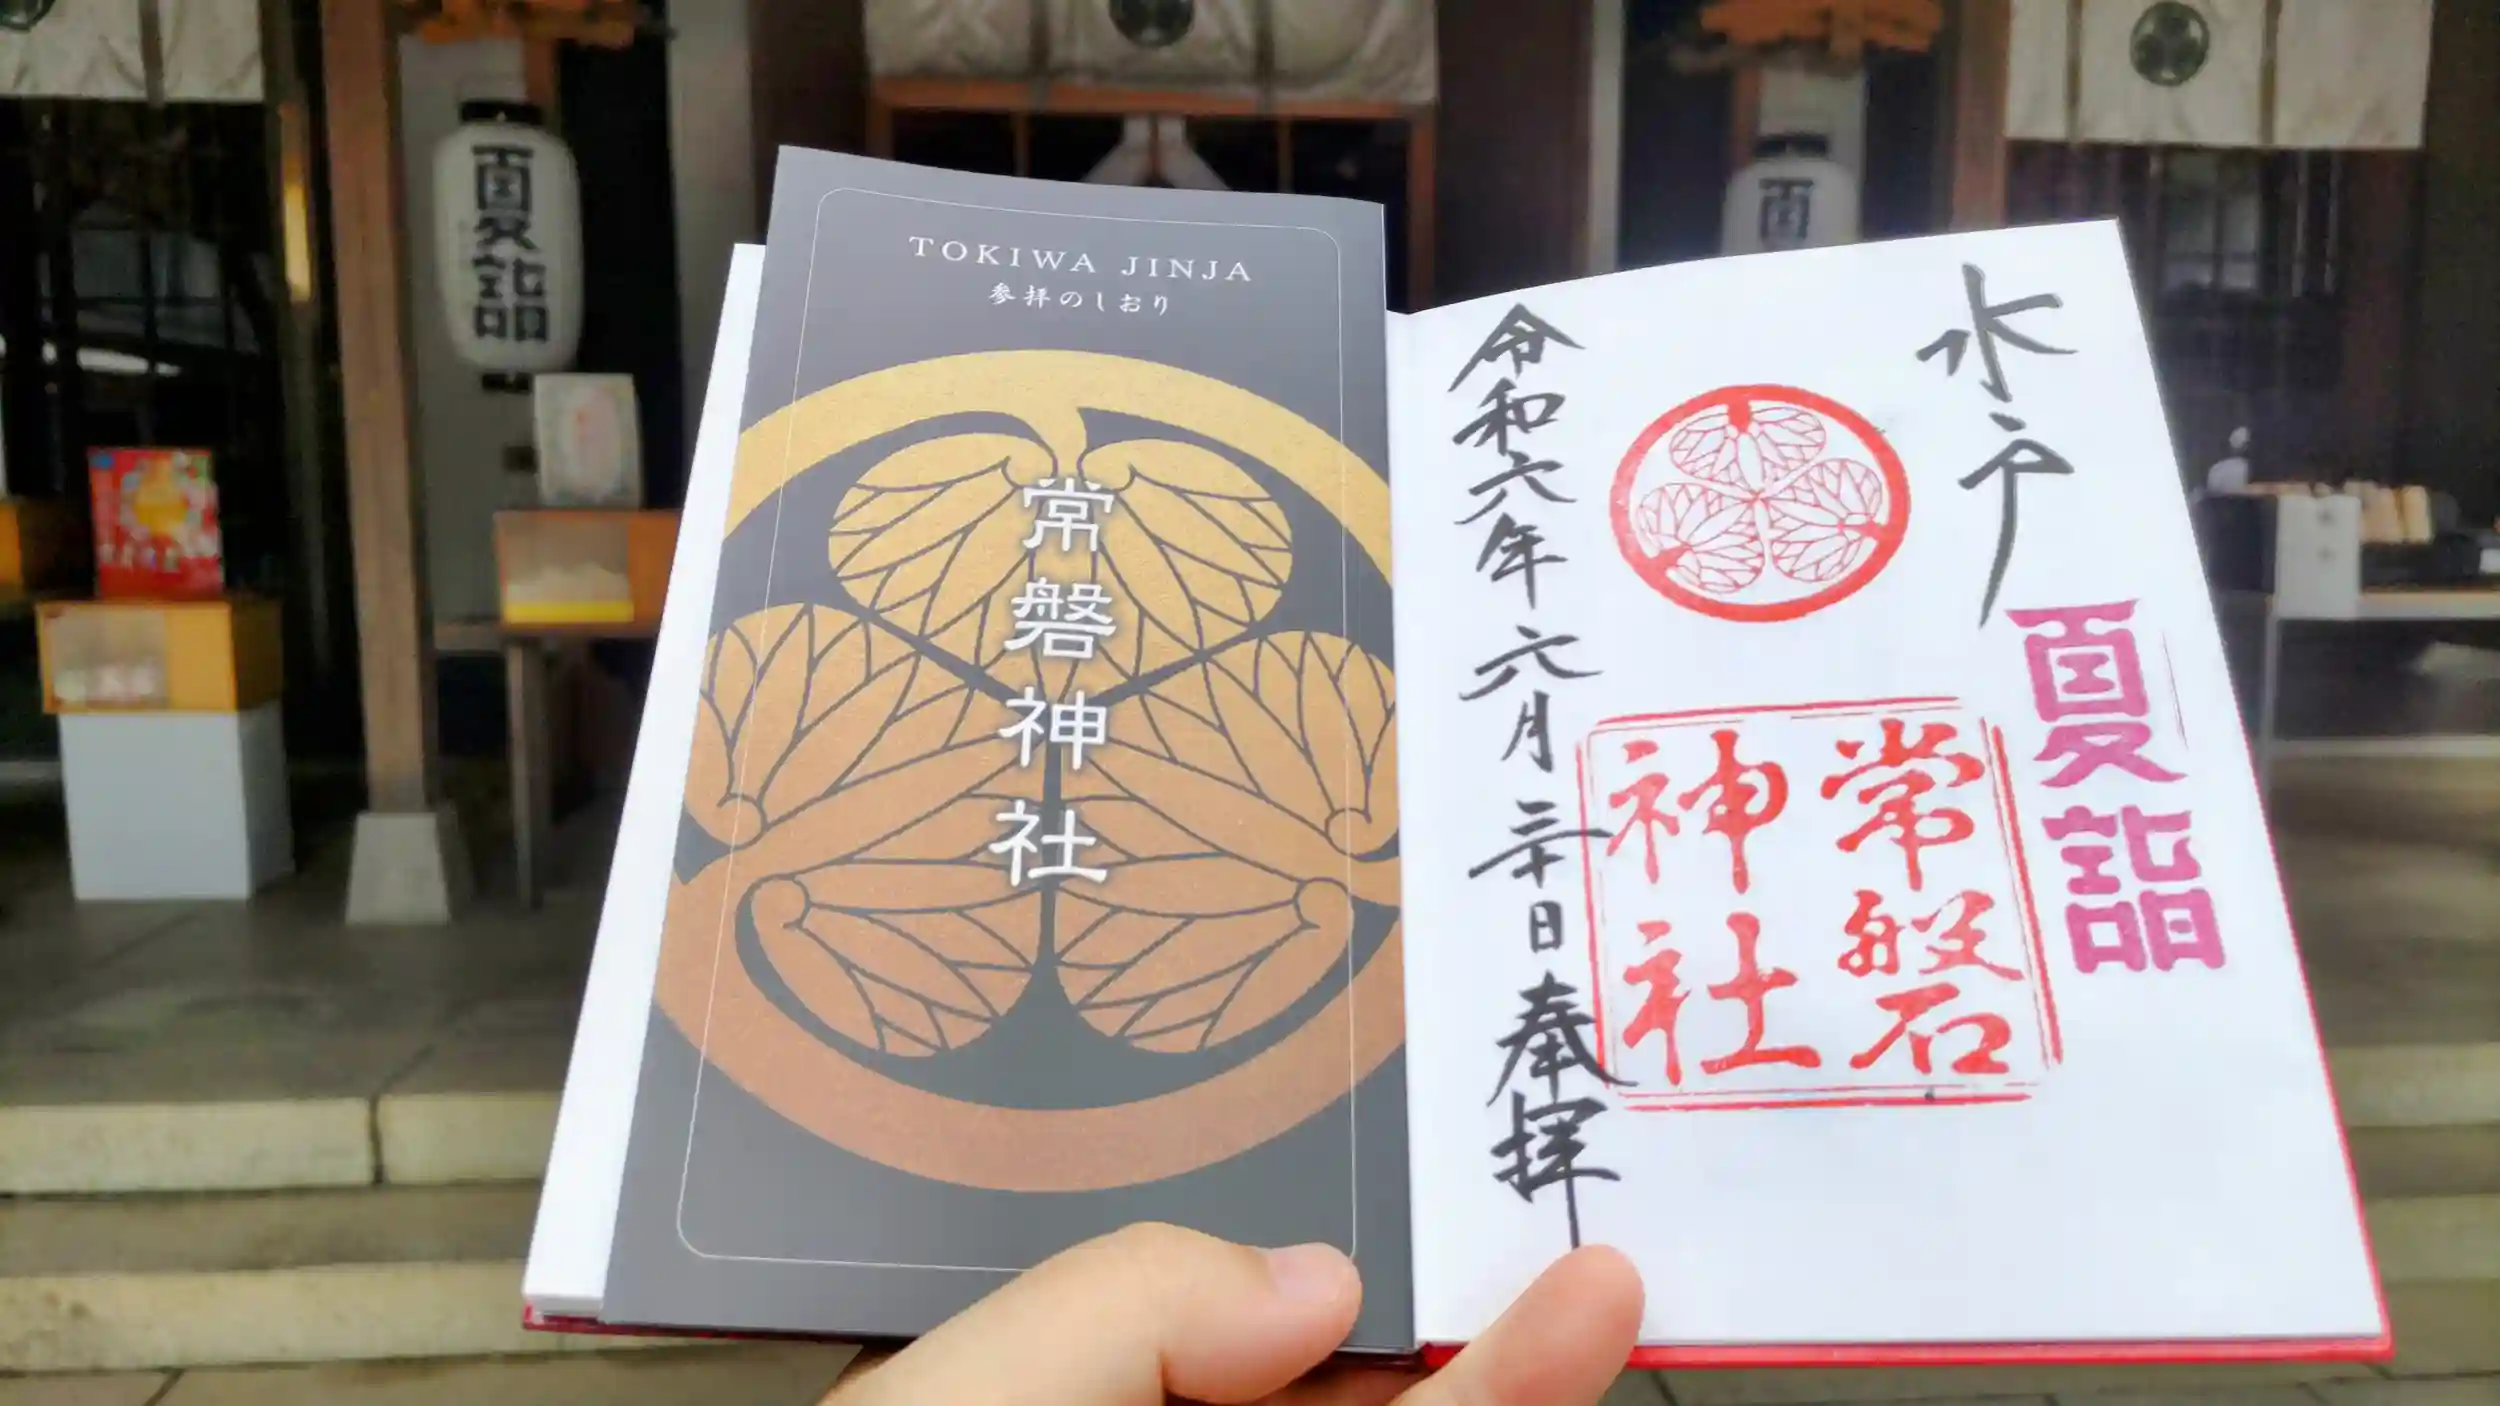 TOKIWA JINJA
参拝のしおり
常磐神社
水戸
夏詣
常磐
神社
令和六年 六月 三十日 奉拝
夏詣
夏